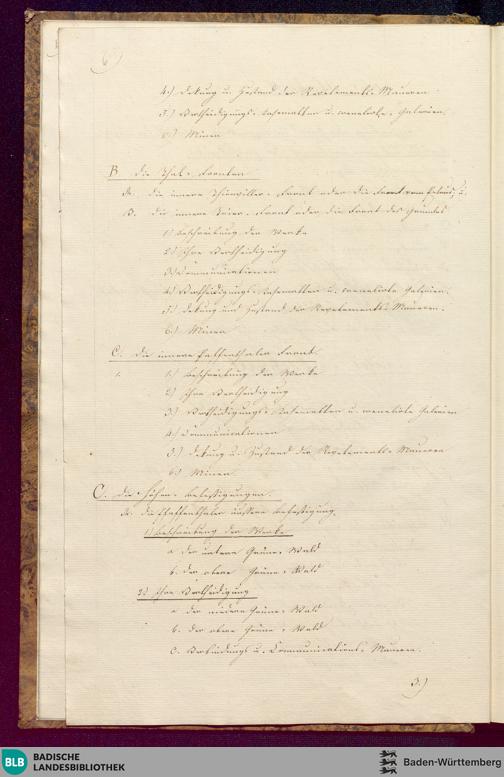 4.) Dekung u. Zustand der Revetements-Mauren.
5.) Vertheidigungs-Casematten u. crenelirte Galerien.
6.) Minen
B. Die Thal-Fronten
A. die innere Thionviller-Front oder die Front vom heiligen
B. die innere Trier-Front oder die Front des Grundes
1.) Beschreibung der Werke
2.) Ihre Vertheidigung
3.) Communicationen
4.) Vertheidigungs-Casematten u. crenelirte Galerien.
5.) Dekung und Zustand der Revetements-Mauren.
6.) Minen
C. Die innere Paffenthaler Front.
1.) Beschreibung der Werke
2.) Ihre Vertheidigung
3.) Vertheidigungs-Casematten u. crenelirte Galerien
4.) Communicationen
5.) Dekung u. Zustand der Revetements-Mauren
6.) Minen.
C. Die Höhen-Befestigungen.
A. die Paffenthaler äussere Befestigung.
1.) Beschreibung der Werke
a. Der untere Grüne-Wald
b. Der obere Grüne-Wald
2.) Ihre Vertheidigung
a. Der niedere Grüne-Wald
b. Der obere Grüne-Wald
c. Verbindungs u. Communications-Mauren.
3.)
BLB BADISCHE LANDESBIBLIOTHEK
Baden-Württemberg